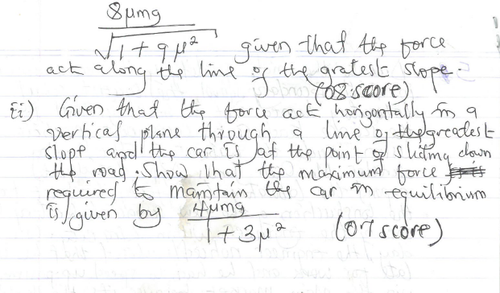 8μmg
√1 + 9μ² given that the force
act along the line of the gratest slope.
(08 score)
ii) Given that the force act horizontally in a
vertical plane through a line of the greatest
slope and the car is at the point of sliding down
the road. Show that the maximum force
required to maintain the car in equilibrium
is given by 4μmg
1 + 3μ² (07 score)